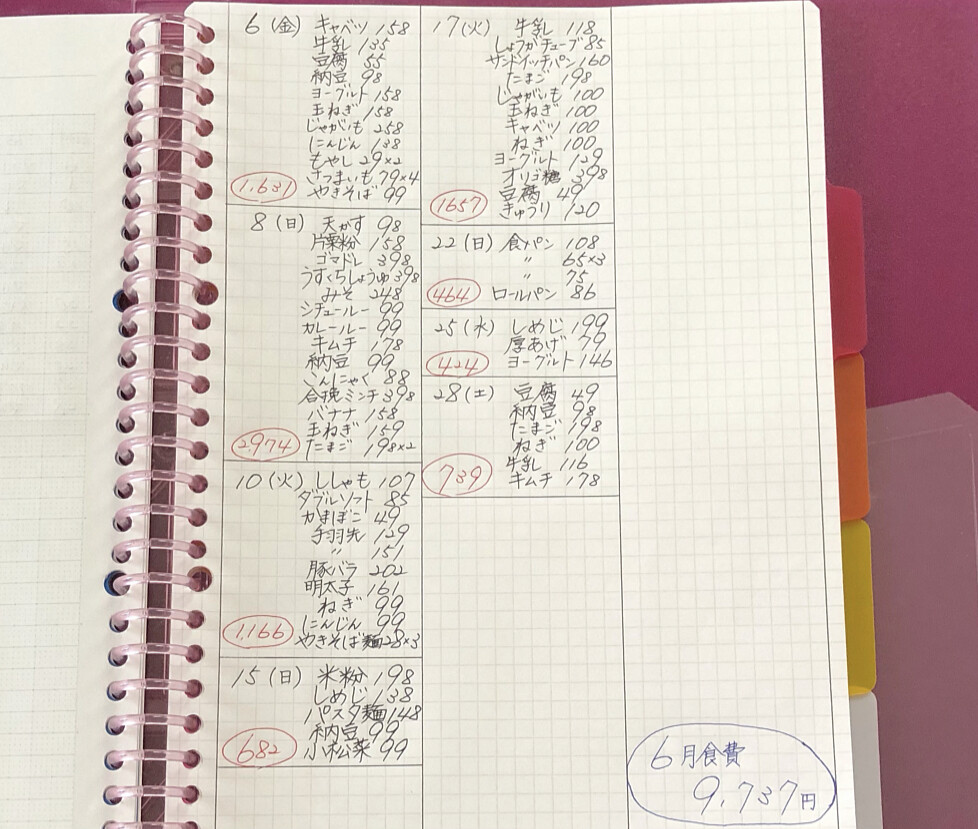 6 (金) キャベツ 158
牛乳 135
豆腐 55
納豆 98
ヨーグルト 158
玉ねぎ 158
じゃがいも 258
にんじん 138
もやし 29×2
さつまいも 79×4
1,631 やきそば 99
8 (日) 天かす 98
片栗粉 158
ゴマドレ 398
うすくちしょうゆ 398
みそ 248
シチュールー 99
カレールー 99
キムチ 178
納豆 99
こんにゃく 88
合挽ミンチ 398
バナナ 158
玉ねぎ 159
2,974 たまご 198×2
10 (火) ししゃも 107
ダブルソフト 85
かまぼこ 49
手羽先 129
〃 151
豚バラ 202
明太子 161
ねぎ 99
にんじん 99
1,166 やきそば麺 28×3
15 (日) 米粉 198
しめじ 138
パスタ麺 148
納豆 99
682 小松菜 99
17 (火) 牛乳 118
しょうがチューブ 85
サンドイッチパン 160
たまご 198
じゃがいも 100
玉ねぎ 100
キャベツ 100
ねぎ 100
ヨーグルト 129
オリゴ糖 398
1657 豆腐 49
きゅうり 120
22 (日) 食パン 108
〃 65×3
〃 75
464 ロールパン 86
25 (水) しめじ 199
厚あげ 79
424 ヨーグルト 146
28 (土) 豆腐 49
納豆 98
たまご 198
ねぎ 100
牛乳 116
739 キムチ 178
6月食費
9,737円